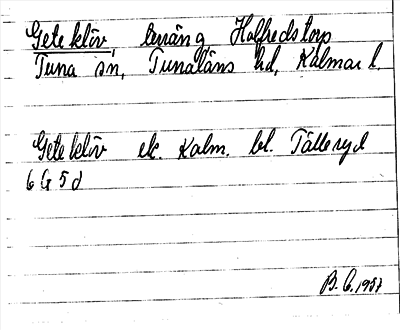 Geteklöv, terräng Halfredstorp
Tuna sn, Tunaläns hd, Kalmar l.
Geteklöv ek. Kalm. bl. Tälleryd
6 G 5 d
B. C. 1957